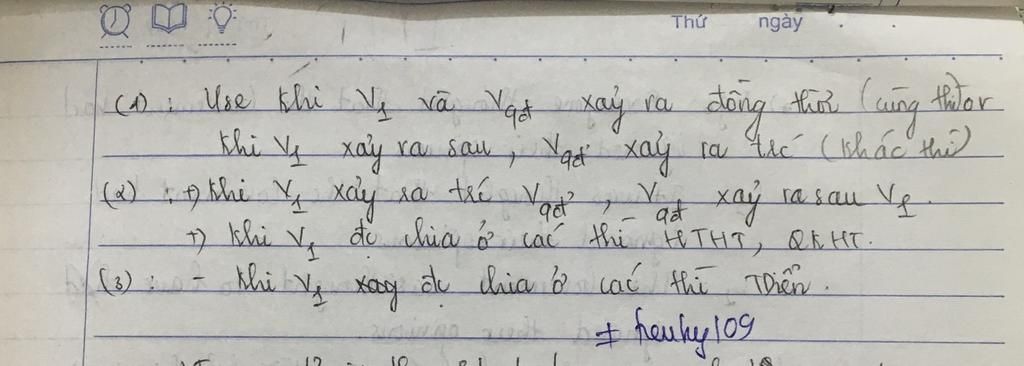 Thứ ngày
(1) : Use khi V1 và Vqđ xảy ra đồng thời (cùng thì) or
khi V1 xảy ra sau, Vqđ xảy ra trc (khác thì)
(2) : +) Khi V1 xảy ra trc Vqđ, Vqđ xảy ra sau V1.
+) Khi V1 đc chia ở các thì HTHT, QKHT.
(3) : - khi V1 đc chia ở các thì TDiễn.